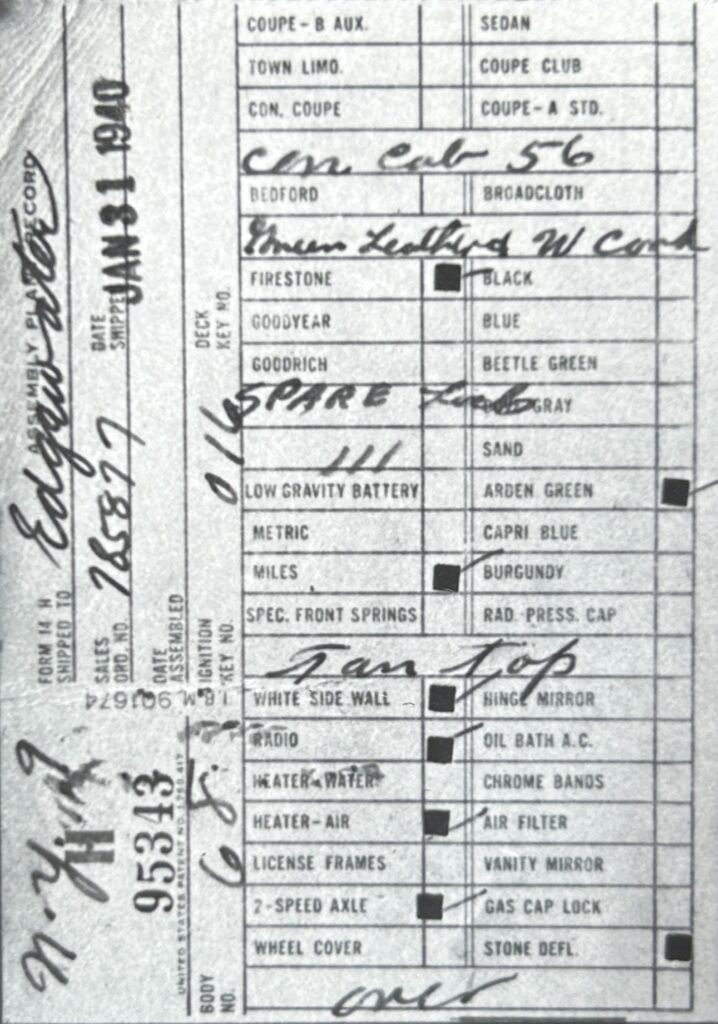 COUPE - B AUX. SEDAN
TOWN LIMO. COUPE CLUB
CON. COUPE COUPE - A STD.
Con Cab 56
BEDFORD BROADCLOTH
Green Leather W Cord
FIRESTONE BLACK
GOODYEAR BLUE
GOODRICH BEETLE GREEN
SPARE GRAY
SAND
LOW GRAVITY BATTERY ARDEN GREEN
METRIC CAPRI BLUE
MILES BURGUNDY
SPEC. FRONT SPRINGS RAD. PRESS. CAP
Tan top
WHITE SIDE WALL HINGE MIRROR
RADIO OIL BATH A.C.
HEATER-WATER CHROME BANDS
HEATER-AIR AIR FILTER
LICENSE FRAMES VANITY MIRROR
2-SPEED AXLE GAS CAP LOCK
WHEEL COVER STONE DEFL.
over
ASSEMBLY PLANT RECORD
FORM 14 H
SHIPPED TO Edgewater
SALES ORD. NO. 785877 DATE SHIPPED JAN 31 1940
DATE ASSEMBLED
IGNITION KEY NO. 016 DECK KEY NO.
I.B.M. 901674
N.Y.
H
95343
UNITED STATES PATENT NO. 1,780,417
BODY NO. 68